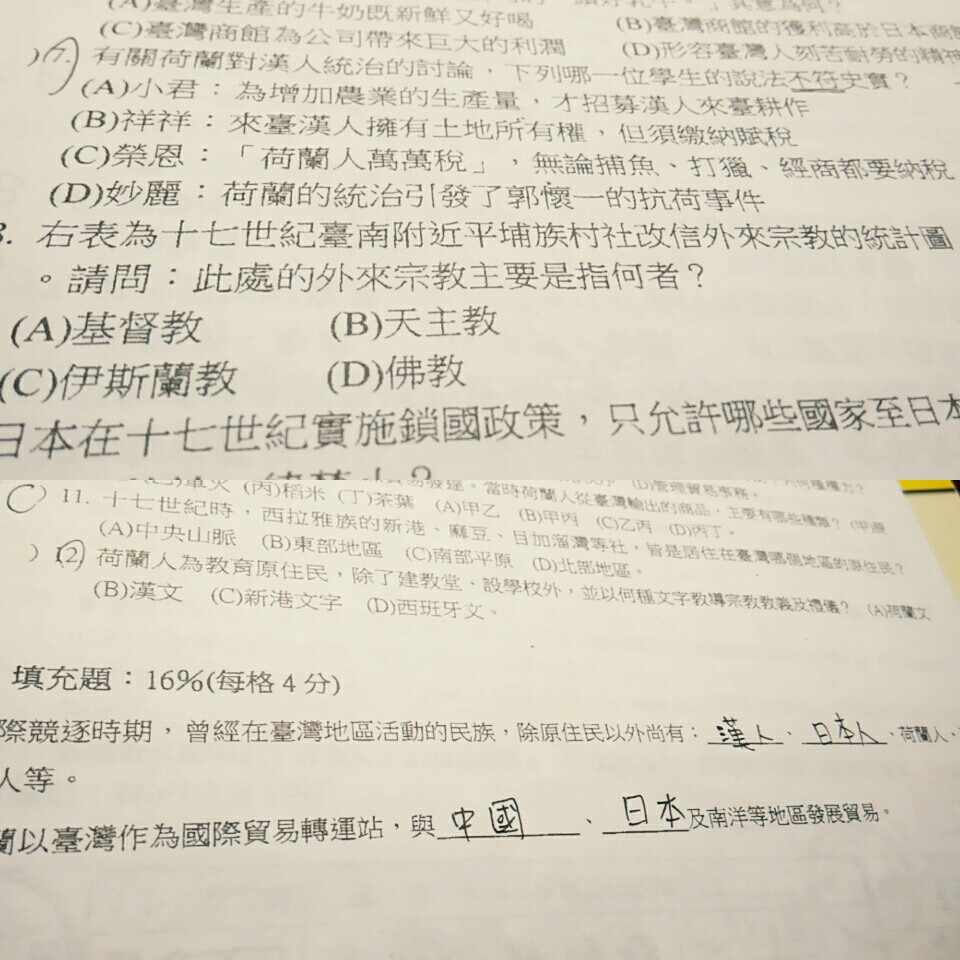 (A)臺灣生產的牛奶既新鮮又好喝 (B)臺灣商館的獲利高於日本商館
(C)臺灣商館為公司帶來巨大的利潤 (D)形容臺灣人刻苦耐勞的精神
)(7.) 有關荷蘭對漢人統治的討論，下列哪一位學生的說法不符史實？
(A)小君：為增加農業的生產量，才招募漢人來臺耕作
(B)祥祥：來臺漢人擁有土地所有權，但須繳納賦稅
(C)榮恩：「荷蘭人萬萬稅」，無論捕魚、打獵、經商都要納稅
(D)妙麗：荷蘭的統治引發了郭懷一的抗荷事件
8. 右表為十七世紀臺南附近平埔族村社改信外來宗教的統計圖
。請問：此處的外來宗教主要是指何者？
(A)基督教 (B)天主教
(C)伊斯蘭教 (D)佛教
日本在十七世紀實施鎖國政策，只允許哪些國家至日本
(丙)稻米 (丁)茶葉 (A)甲乙 (B)甲丙 (C)乙丙 (D)丙丁。
(C) 11. 十七世紀時，西拉雅族的新港、麻豆、目加溜灣等社，皆是居住在臺灣哪個地區的原住民？
(A)中央山脈 (B)東部地區 (C)南部平原 (D)北部地區。
) 12 荷蘭人為教育原住民，除了建教堂、設學校外，並以何種文字教導宗教教義及禮儀？ (A)荷蘭文
(B)漢文 (C)新港文字 (D)西班牙文。
填充題：16%(每格 4 分)
際競逐時期，曾經在臺灣地區活動的民族，除原住民以外尚有：漢人、日本人、荷蘭人、
人等。
蘭以臺灣作為國際貿易轉運站，與中國、日本及南洋等地區發展貿易。